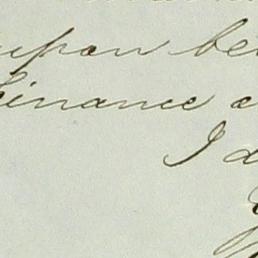 upon be
inance a
I d